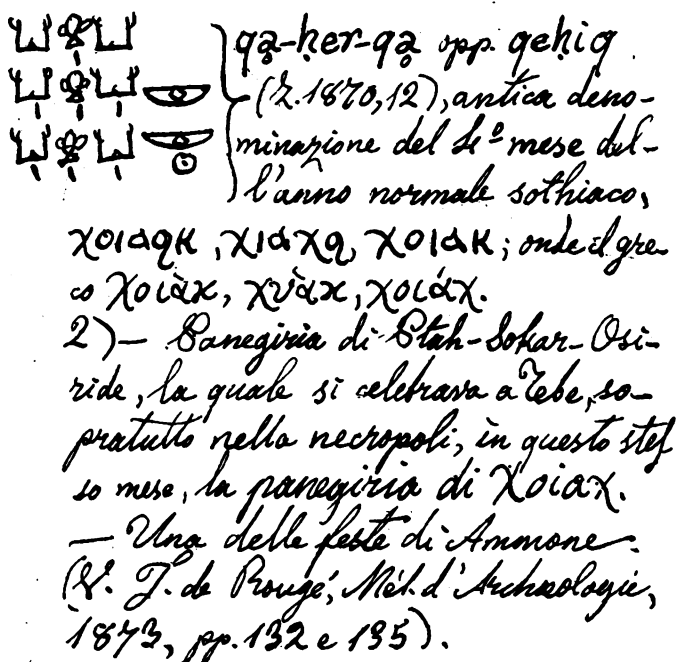 𓂓𓁷𓏤𓂓 qạ-ḥer-qạ opp. qeḥiq
𓂓𓏤𓁷𓏤𓂓𓏤𓎱 (Z. 1870, 12), antica deno-
𓂓𓏤𓁷𓏤𓂓𓏤𓎱𓇳 minazione del 4º mese del-
l'anno normale sothiaco,
ⲭⲟⲓⲁϥⲕ, ⲭⲓⲁⲭϥ, ⲭⲟⲓⲁⲕ; onde il gre-
co Χοιὰκ, χυὰκ, χοιάχ.
2) — Panegiria di Ptah-Sokar-Osi-
ride, la quale si celebrava a Tebe, so-
pratutto nella necropoli, in questo stes
so mese, la panegiria di Χοιαχ.
— Una delle feste di Ammone.
(V. J. de Rougé, Mél. d'Archæologie,
1873, pp. 132 e 135).